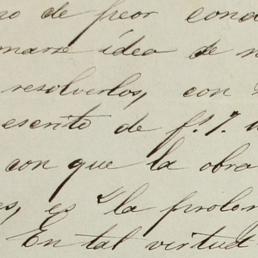 so de peor cond
marse idea de n
resolverlos, con
escrito de f.s 7. u
con que la obra
es, es "la prolon
En tal virtud